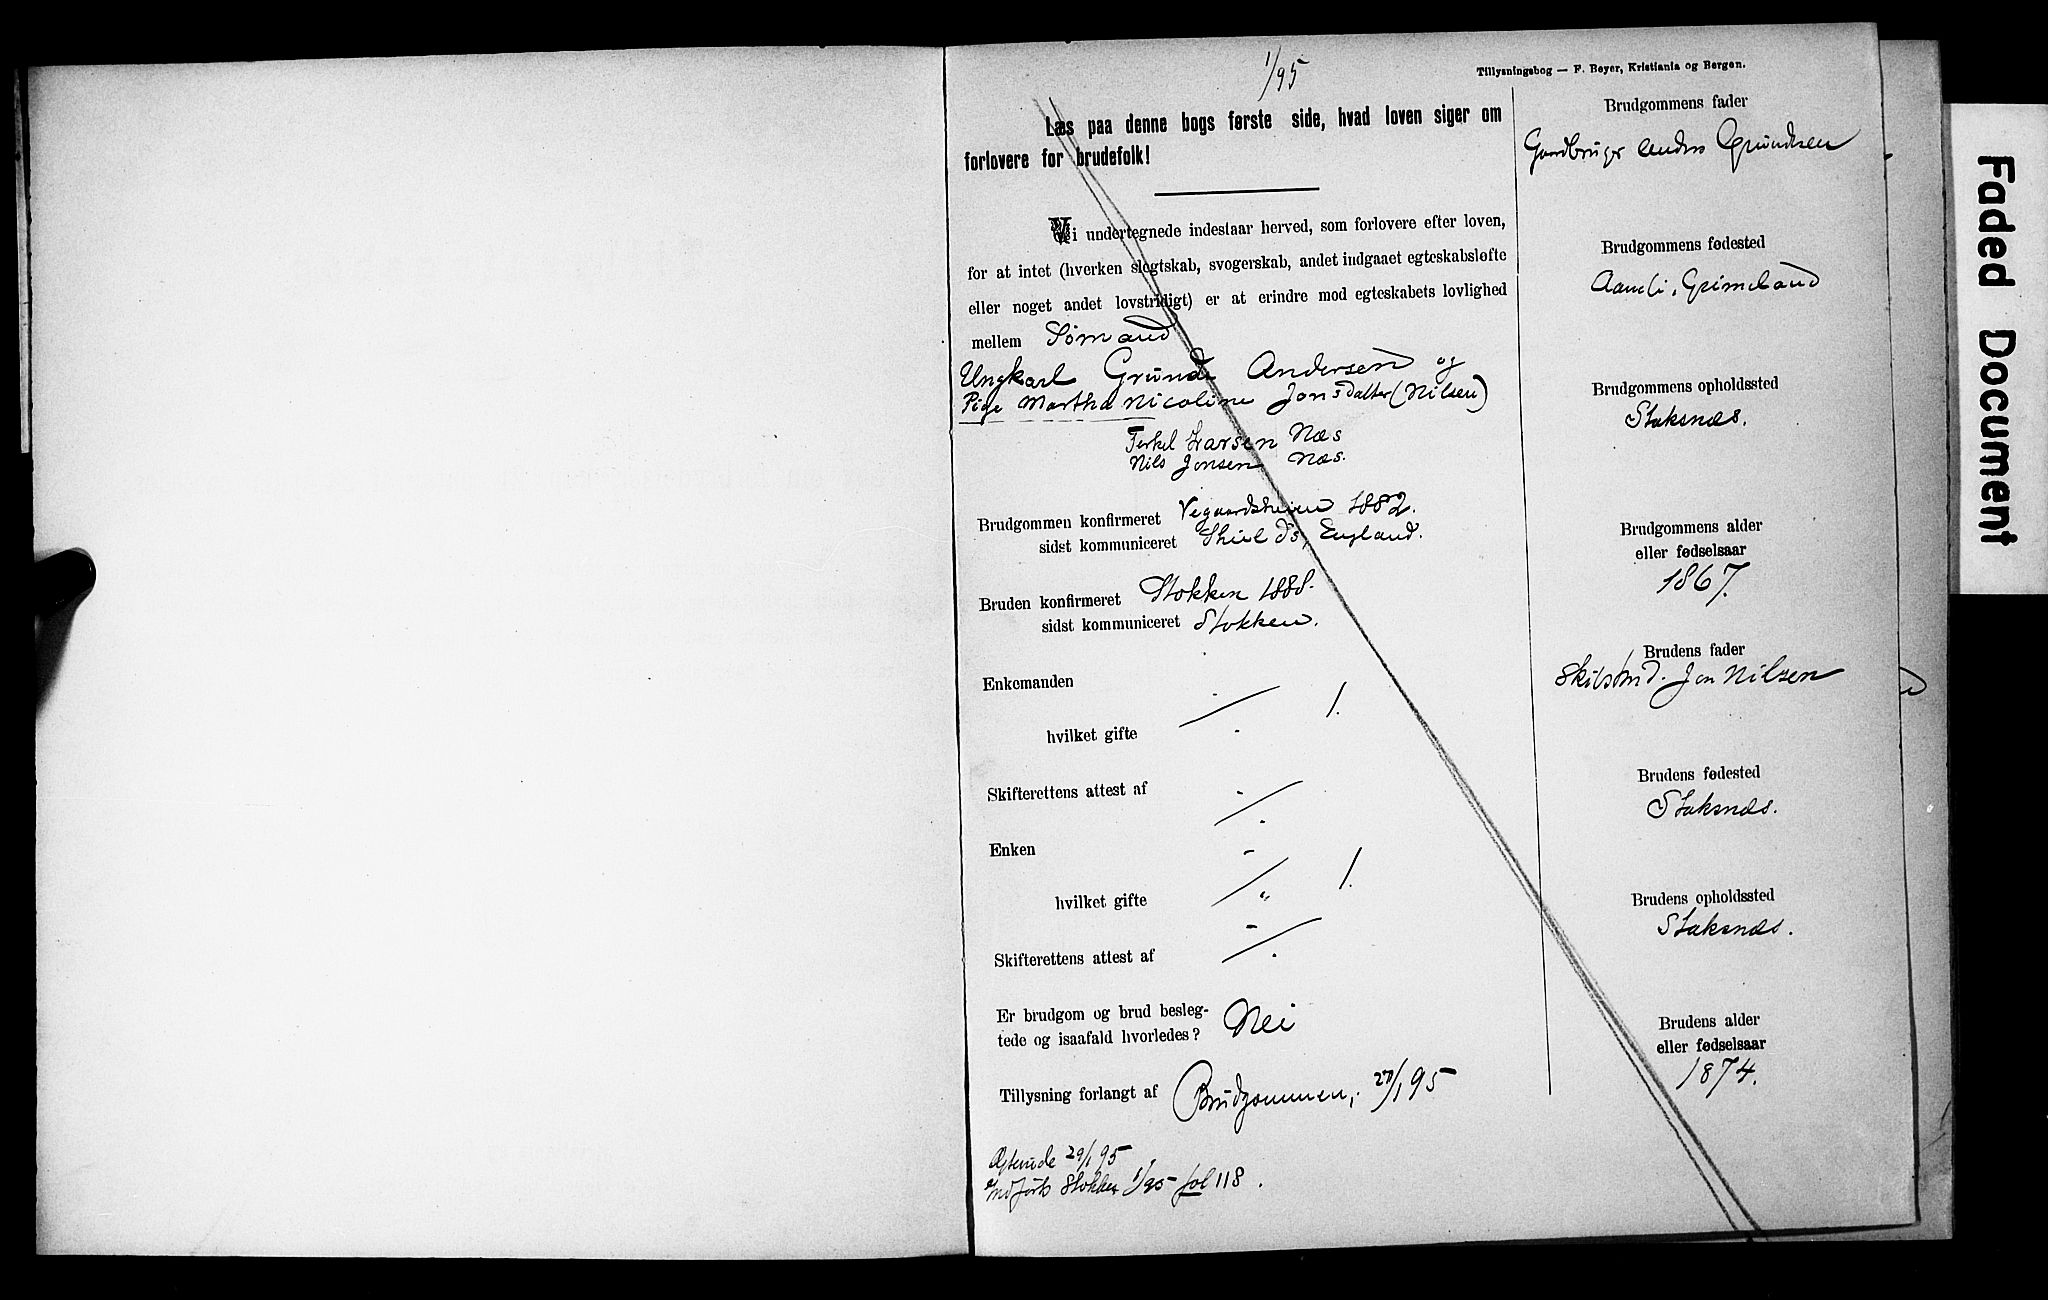 1/95
Tillysningsbog — F. Beyer, Kristiania og Bergen.
Læs paa denne bogs første side, hvad loven siger om
forlovere for brudefolk!
Vi undertegnede indestaar herved, som forlovere efter loven,
for at intet (hverken slegtskab, svogerskab, andet indgaaet egteskabsløfte
eller noget andet lovstridigt) er at erindre mod egteskabets lovlighed
mellem Sømand
Ungkarl Grunde Andersen og
Pige Martha Nicoline Jonsdatter (Nilsen)
Terkel Larsen Næs
Nils Jonsen Næs.
Brudgommen konfirmeret Vegaardsheien 1882.
sidst kommuniceret Shields, England.
Bruden konfirmeret Stokken 1888.
sidst kommuniceret Stokken.
Enkemanden
hvilket gifte 1.
Skifterettens attest af
Enken
hvilket gifte 1.
Skifterettens attest af
Er brudgom og brud besleg-
tede og isaafald hvorledes? Nei
Tillysning forlangt af Brudgommen, 27/1 95
29/1 95
Indført Stokken 1/95 fol 118.
Brudgommens fader
Gaardbruger Anders Grundesen
Brudgommens fødested
Aamli, Grimeland
Brudgommens opholdssted
Staksnæs.
Brudgommens alder
eller fødselsaar
1867.
Brudens fader
Jon Nilsen
Brudens fødested
Staksnæs.
Brudens opholdssted
Staksnæs.
Brudens alder
eller fødselsaar
1874.
Faded Document